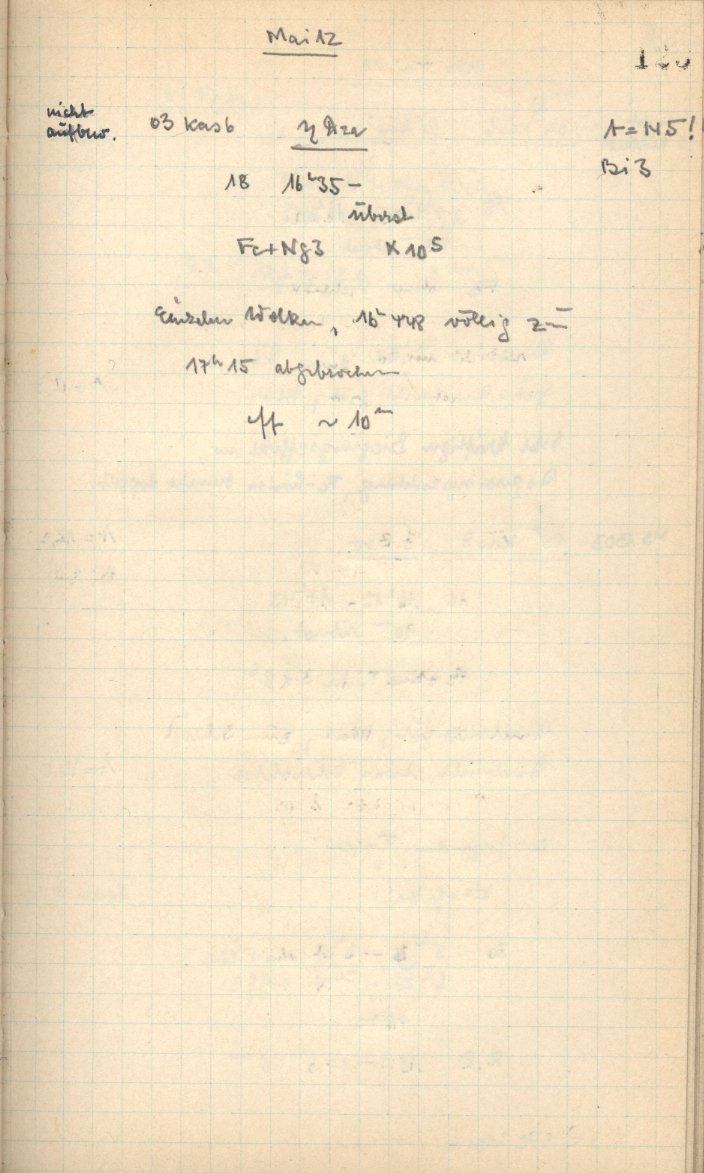 Mai 12
nicht
aufbew.
03 Kas6 η Ara A=145!!
Bi 3
18 16ʰ35-
überst
Fe+Ng3 X 10⁵
Einzelne Wolken, völlig zu
17ʰ15 abgebrochen
eff ~ 10ᵐ